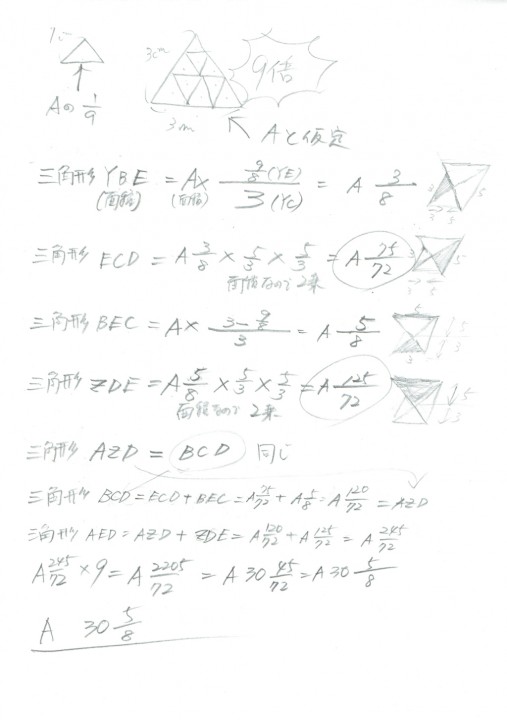 1cm
3cm
9倍
Aの 1/9
3cm
Aと仮定
三角形 YBE = A× 9/8(YE) / 3(YC) = A 3/8
(面積) (面積)
三角形 ECD = A 3/8 × 5/3 × 5/3 = A 75/72
面積なので2乗
三角形 BEC = A× (3 - 9/8) / 3 = A 5/8
三角形 ZDE = A 5/8 × 5/3 × 5/3 = A 125/72
面積なので 2乗
三角形 AZD = BCD 同じ
三角形 BCD = ECD + BEC = A 75/72 + A 5/8 = A 120/72 = AZD
三角形 AED = AZD + ZDE = A 120/72 + A 125/72 = A 245/72
A 245/72 × 9 = A 2205/72 = A 30 45/72 = A 30 5/8
A 30 5/8